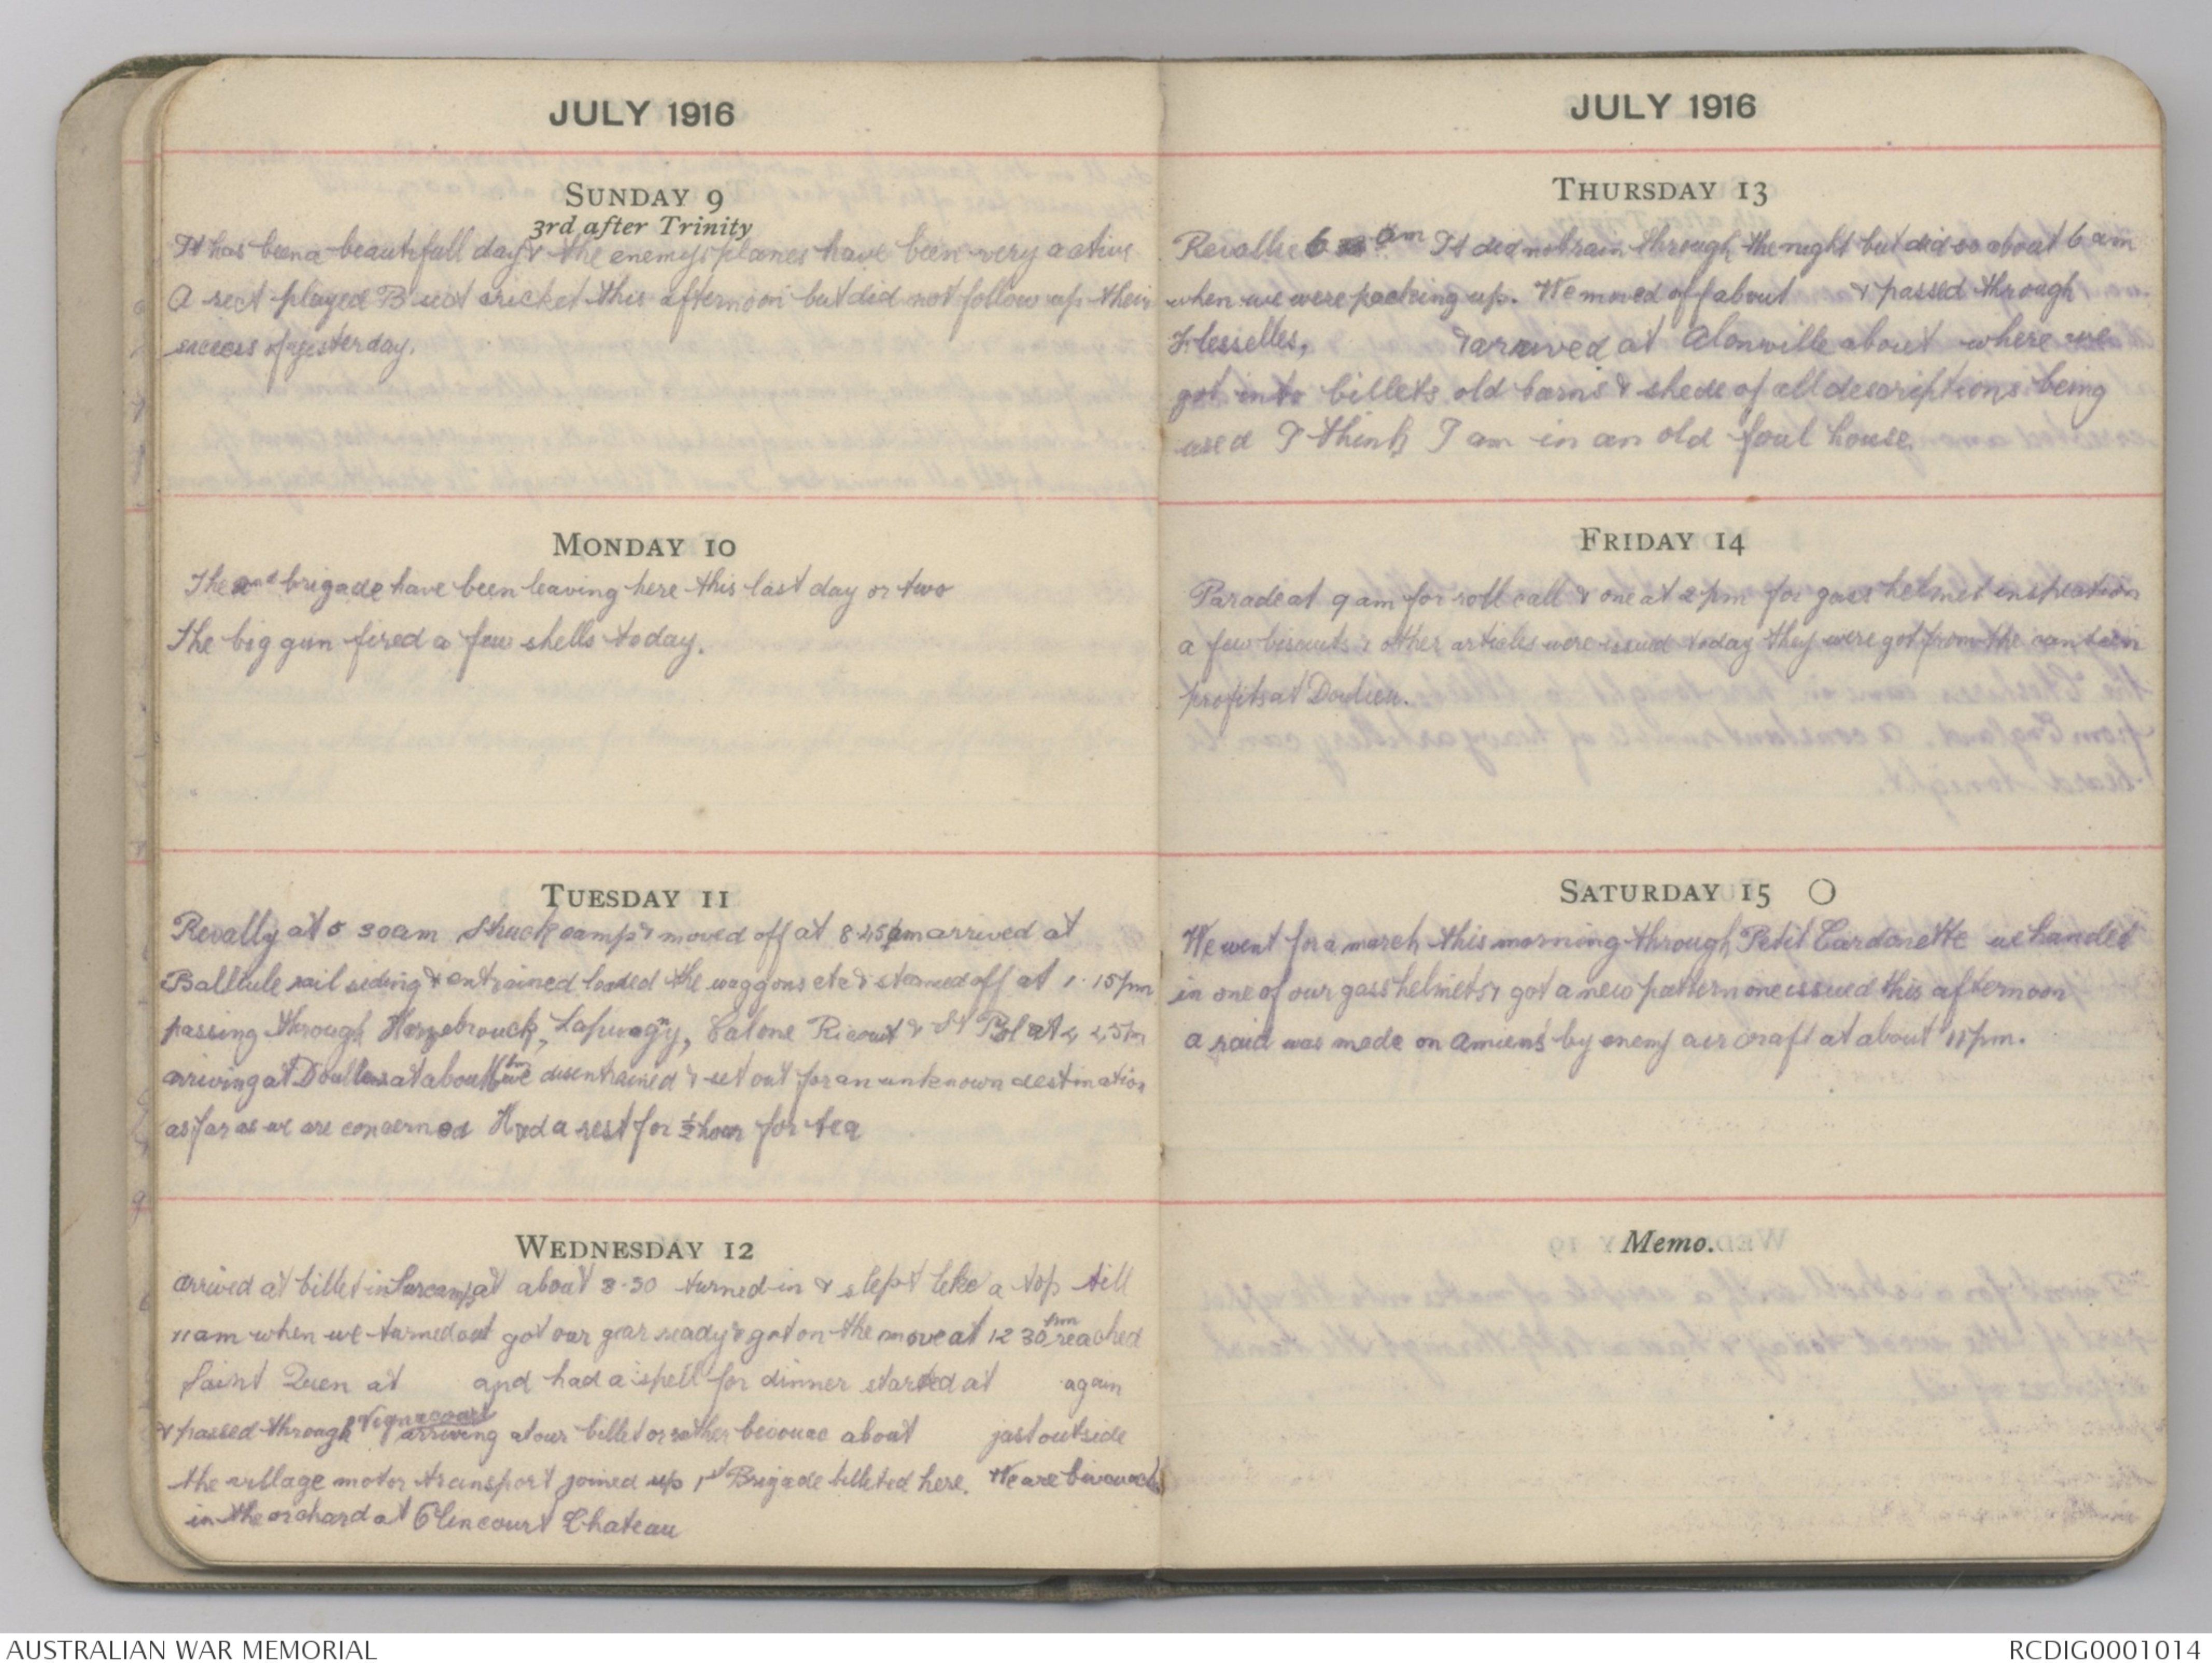 JULY 1916
SUNDAY 9
3rd after Trinity
It has been a beautifull day & the enemys planes have been very active
A sect played B sect cricket this afternoon but did not follow up their
success of yesterday.
MONDAY 10
The 2nd brigade have been leaving here this last day or two
The big gun fired a few shells today.
TUESDAY 11
Revally at 5 30am Struck camp & moved off at 8.45 am arrived at
rail siding & entrained loaded the waggons etc & steamed off at 1.15pm
passing through Hazebrouck, Calone Ricout & St Pol at
arriving at Doullens at about we disentrained & set out for an unknown destination
as far as we are concerned Had a rest for ½ hour for tea
WEDNESDAY 12
arrived at billet in Surcamp at about 3-30 turned in & slept like a top till
11am when we turned out got our gear ready & got on the move at 12 30 pm reached
Saint Quen at and had a spell for dinner started at again
& passed through Vignacourt arriving at our billet or rather bivouac about just outside
the village motor transport joined up 1st Brigade billeted here. We are bivouack
in the orchard at Chateau
JULY 1916
THURSDAY 13
Revallie 6 am It did not rain through the night but did so about 6 am
when we were packing up. We moved off about & passed through
Flesselles, & arrived at Alonville about where we
got into billets old barns & sheds of all descriptions being
used I think I am in an old foul house.
FRIDAY 14
Parade at 9 am for roll call & one at 2 pm for gass helmet inspection
a few biscuits & other articles were issued today they were got from the canteen
profits at Doulieu.
SATURDAY 15
We went for a march this morning through Petit Cardonette we handed
in one of our gass helmets & got a new pattern one issued this afternoon
a raid was made on Amiens by enemy air craft at about 11pm.
Memo.
AUSTRALIAN WAR MEMORIAL
RCDIG0001014